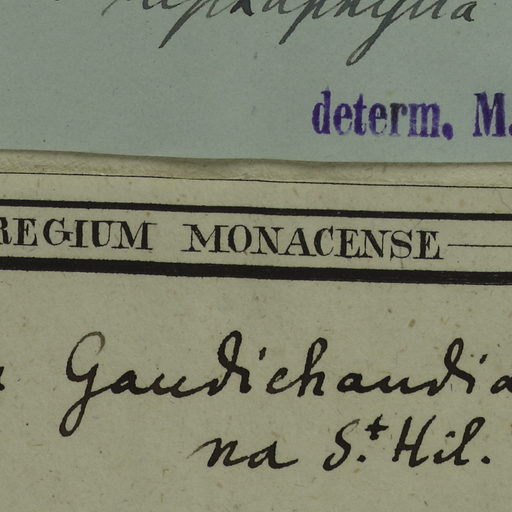 determ. M.
REGIUM MONACENSE
Gaudichaudia
na S.t Hil.